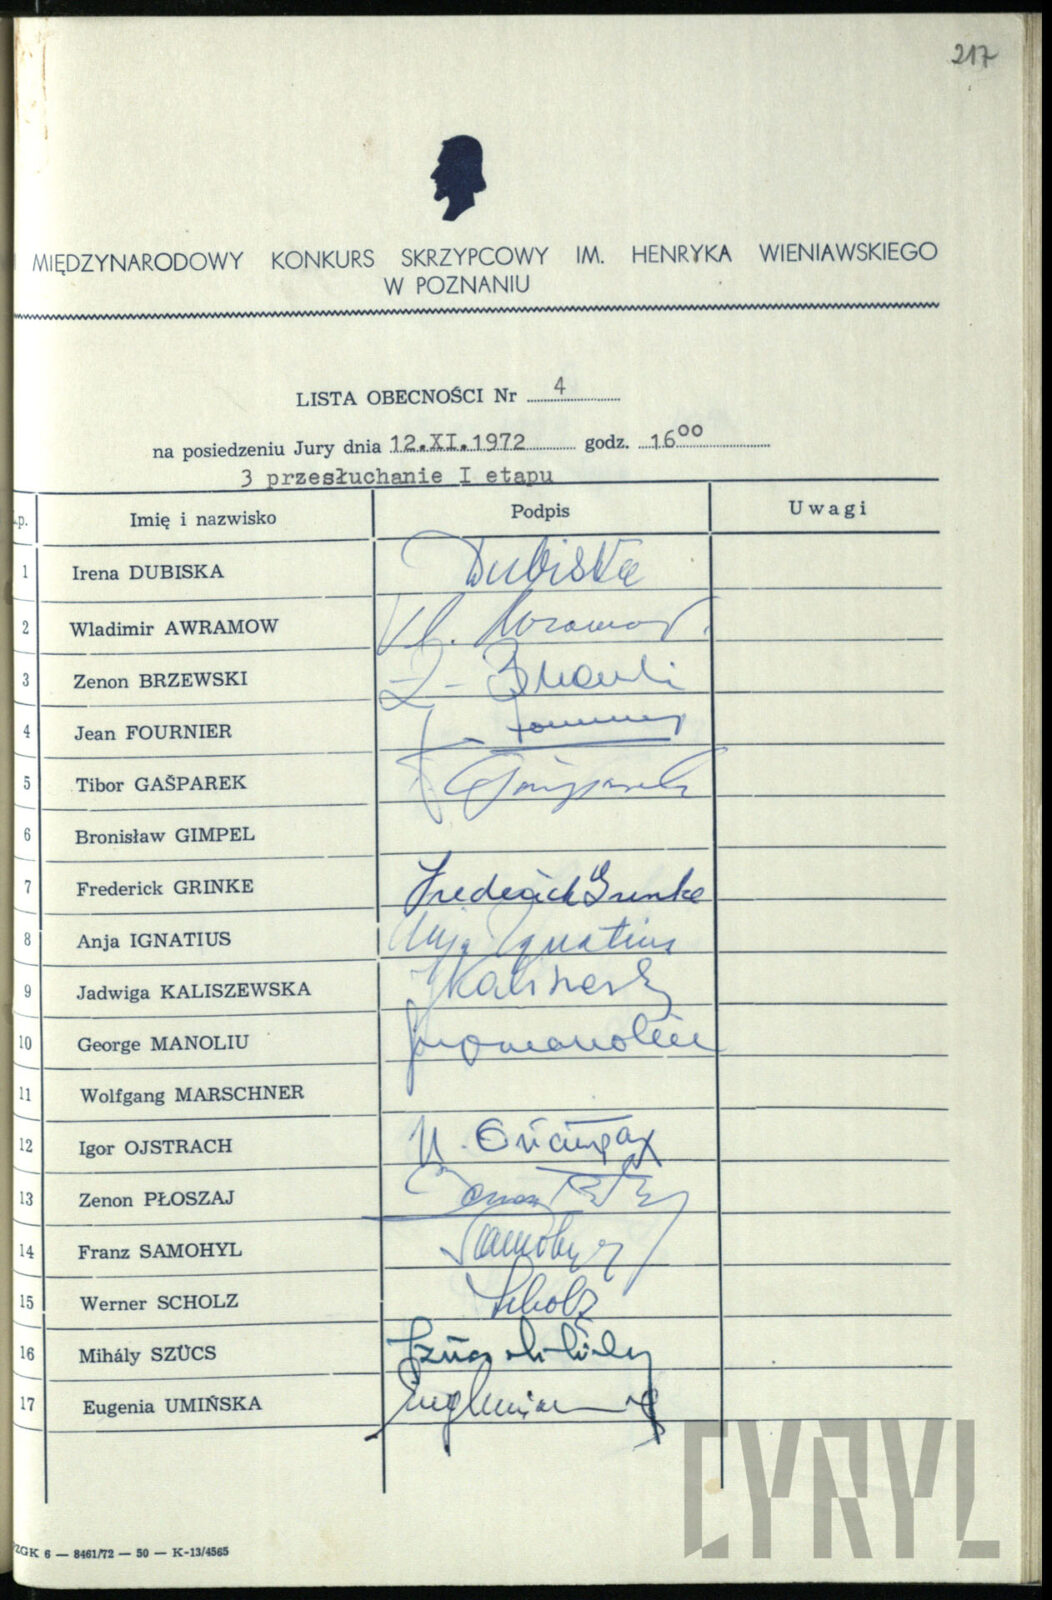 217
MIĘDZYNARODOWY KONKURS SKRZYPCOWY IM. HENRYKA WIENIAWSKIEGO
W POZNANIU
LISTA OBECNOŚCI Nr 4
na posiedzeniu Jury dnia 12.XI.1972 godz. 16⁰⁰
3 przesłuchanie I etapu
.p. Imię i nazwisko Podpis Uwagi
1 Irena DUBISKA Dubiska
2 Wladimir AWRAMOW Vl. Avramov.
3 Zenon BRZEWSKI Z.
4 Jean FOURNIER
5 Tibor GAŠPAREK T Gašparek
6 Bronisław GIMPEL
7 Frederick GRINKE Frederick Grinke
8 Anja IGNATIUS Anja Ignatius
9 Jadwiga KALISZEWSKA JKaliszewska
10 George MANOLIU
11 Wolfgang MARSCHNER
12 Igor OJSTRACH И. Ойстрах
13 Zenon PŁOSZAJ Zenon
14 Franz SAMOHYL Samohyl
15 Werner SCHOLZ Scholz
16 Mihály SZÜCS Szücs Mihály
17 Eugenia UMIŃSKA
ZGK 6 — 8461/72 — 50 — K-13/4565
CYRYL